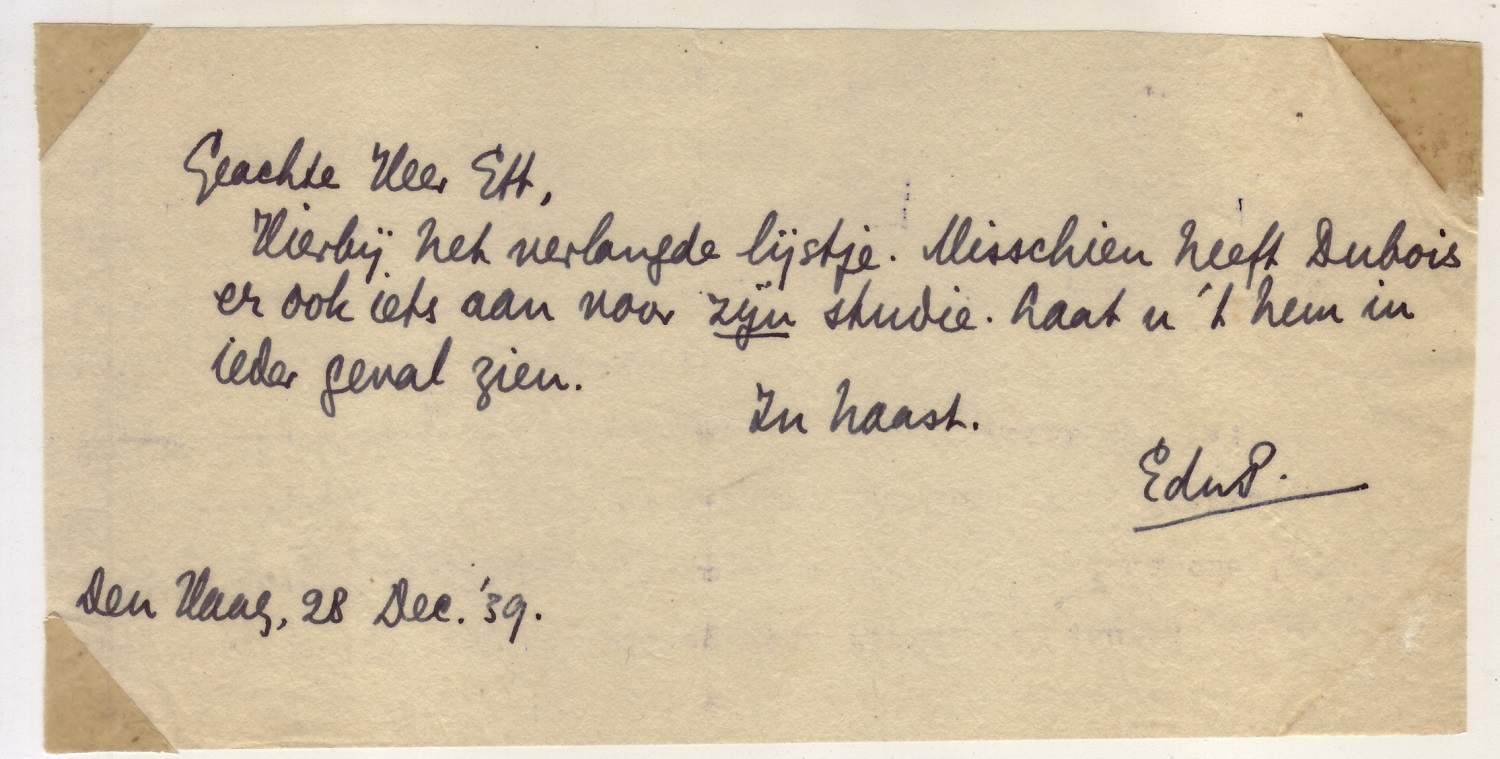 Geachte Heer Ett,
Hierbij het verlangde lijstje. Misschien heeft Dubois
er ook iets aan voor zijn studie. Laat u 't hem in
ieder geval zien.
In haast.
EduP.
Den Haag, 28 Dec. '39.